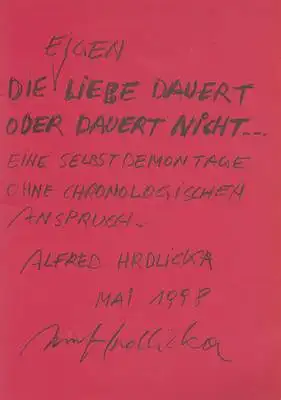 EIGEN
DIE LIEBE DAUERT
ODER DAUERT NICHT...
EINE SELBSTDEMONTAGE
OHNE CHRONOLOGISCHEN
ANSPRUCH.
ALFRED HRDLICKA
MAI 1998
Alfred Hrdlicka